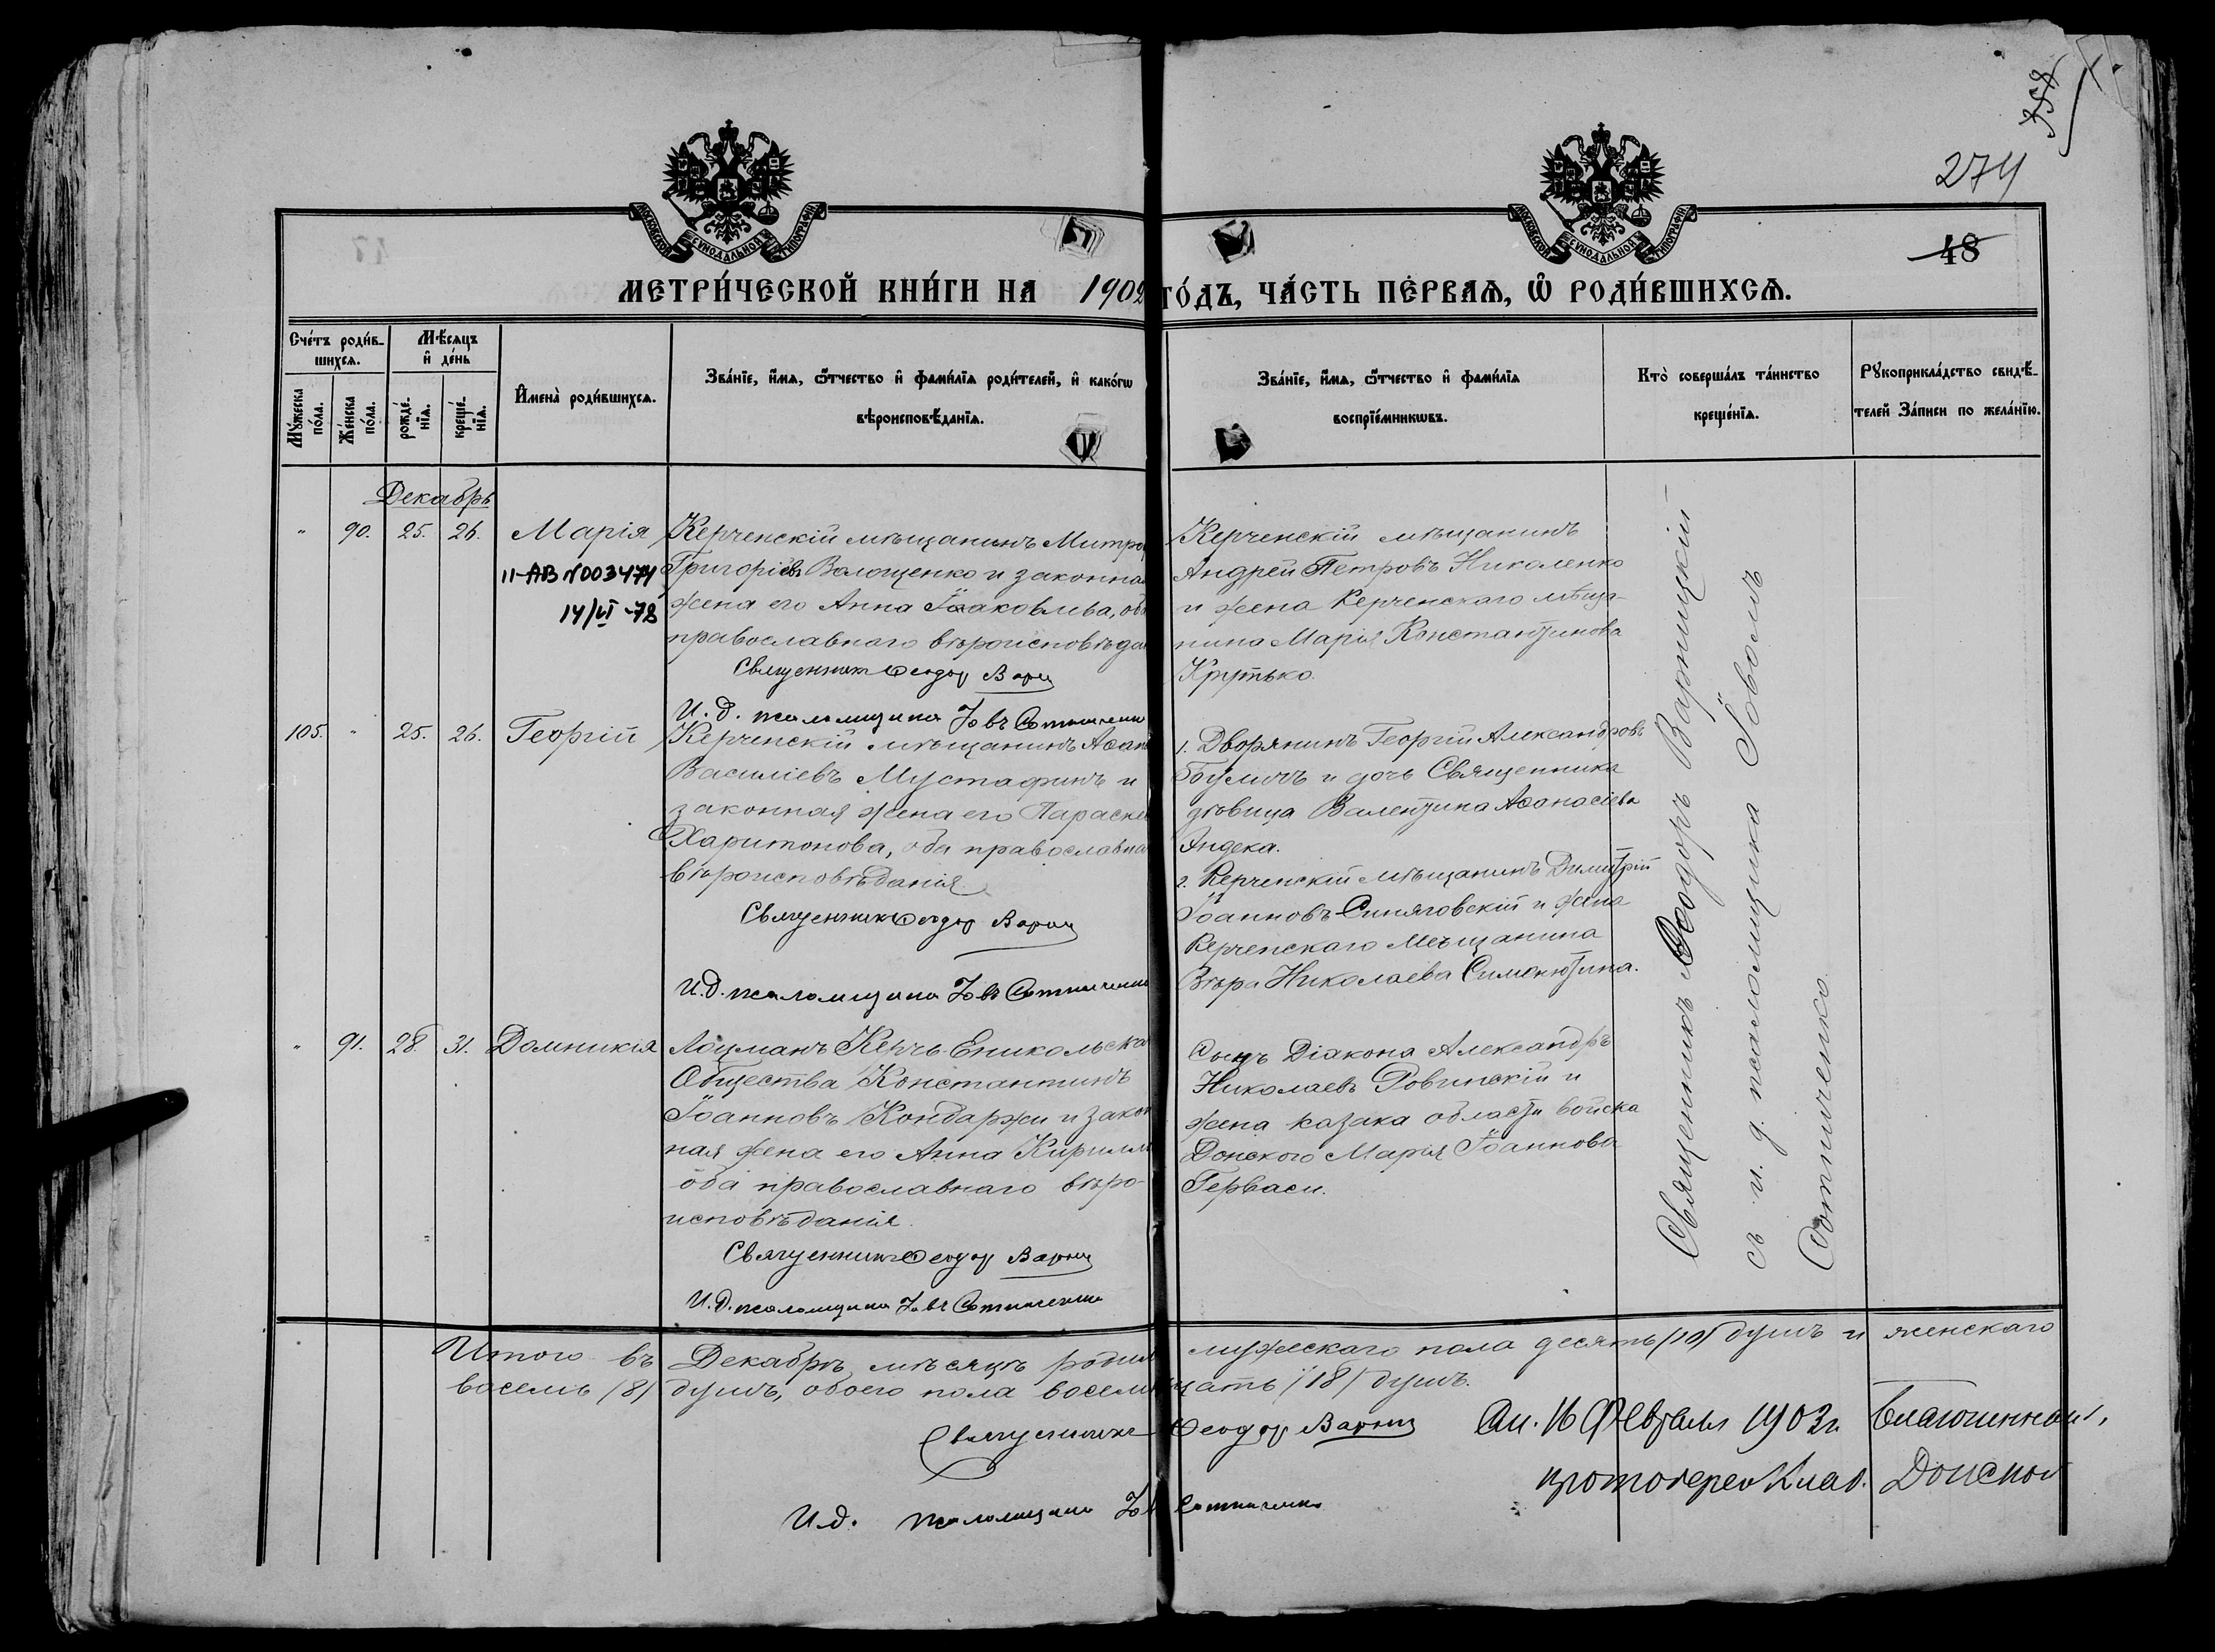 274
48
МОСКОВСКОЙ СѴНОДАЛЬНОЙ ТИПОГРАФІИ
МОСКОВСКОЙ СѴНОДАЛЬНОЙ ТИПОГРАФІИ
МЕТРИ́ЧЕСКОЙ КНИ́ГИ НА 1902 ГО́ДЪ, ЧА́СТЬ ПЕ́РВАѦ, Ѿ РОДИ́ВШИХСѦ.
Сче́тъ роди́в-
шихсѧ.
Мꙋ́жеска по́ла.
Же́нска по́ла.
Мѣ́сѧцъ
и҆ де́нь
рожде́-
нїѧ.
креще́-
нїѧ.
И҆мена̀ роди́вшихсѧ.
Зва́нїе, и҆́мѧ, ѻ҆́тчество и҆ фами́лїѧ роди́телей, и҆ како́гѡ
вѣроисповѣ́данїѧ.
Зва́нїе, и҆́мѧ, ѻ҆́тчество и҆ фами́лїѧ
воспрїе́мникѡвъ.
Кто̀ соверша́лъ та́инство
креще́нїѧ.
Рꙋкоприкла́дство свидѣ́-
телей За́писи по жела́нїю.
Декабрь
" 90. 25. 26. Марія
II-АВ №003474
14/VI-78
Керченскій мѣщанинъ Митро
Григоріевъ Волощенко и законна
жена его Анна Іаковлева, оба
православнаго вѣроисповѣда
Священникъ Ѳеодоръ Варни
И. д. псаломщика Іовъ Сотниченко
Керченскій мѣщанинъ
Андрей Петровъ Николенко
и жена Керченскаго мѣща-
нина Марія Константинова
Крутько.
105. " 25. 26. Георгій
Керченскій мѣщанинъ Аѳан
Василіевъ Мустафинъ и
законная жена его Параске
Харитонова, оба православна
вѣроисповѣданія.
Священникъ Ѳеодоръ Варни
И. д. псаломщика Іовъ Сотниченко
1. Дворянинъ Георгій Александровъ
и дочь Священника
дѣвица Валентина Аѳанасіева
Индека.
2. Керченскій мѣщанинъ Димитрій
Іоанновъ Синяговскій и жена
Керченскаго Мѣщанина
Вѣра Николаева Симонютина.
" 91. 28. 31. Домникія
Лоцманъ Керчь-Еникольска
Общества Константинъ
Іоанновъ Кондаржи и закон
ная жена его Анна Кирилл
оба православнаго вѣро-
исповѣданія.
Священникъ Ѳеодоръ Варни
И. д. псаломщика Іовъ Сотниченко
Сынъ Діакона Александръ
Николаевъ Ровинскій и
жена казака области войска
Донского Марія Іоаннова
Герваси.
Священникъ Ѳеодоръ Варницкій
съ и. д. псаломщика Іовомъ
Сотниченко.
Итого въ Декабрѣ мѣсяцѣ родил мужескаго пола десять /10/ душъ и женскаго
восемь /8/ душъ, обоего пола восемнцать /18/ душъ.
Священникъ Ѳеодоръ Варниц
И. д. псаломщика Іовъ Сотниченко
См. 16 Февраля 1903 г. благочинный,
протоіерей Клав. Донской